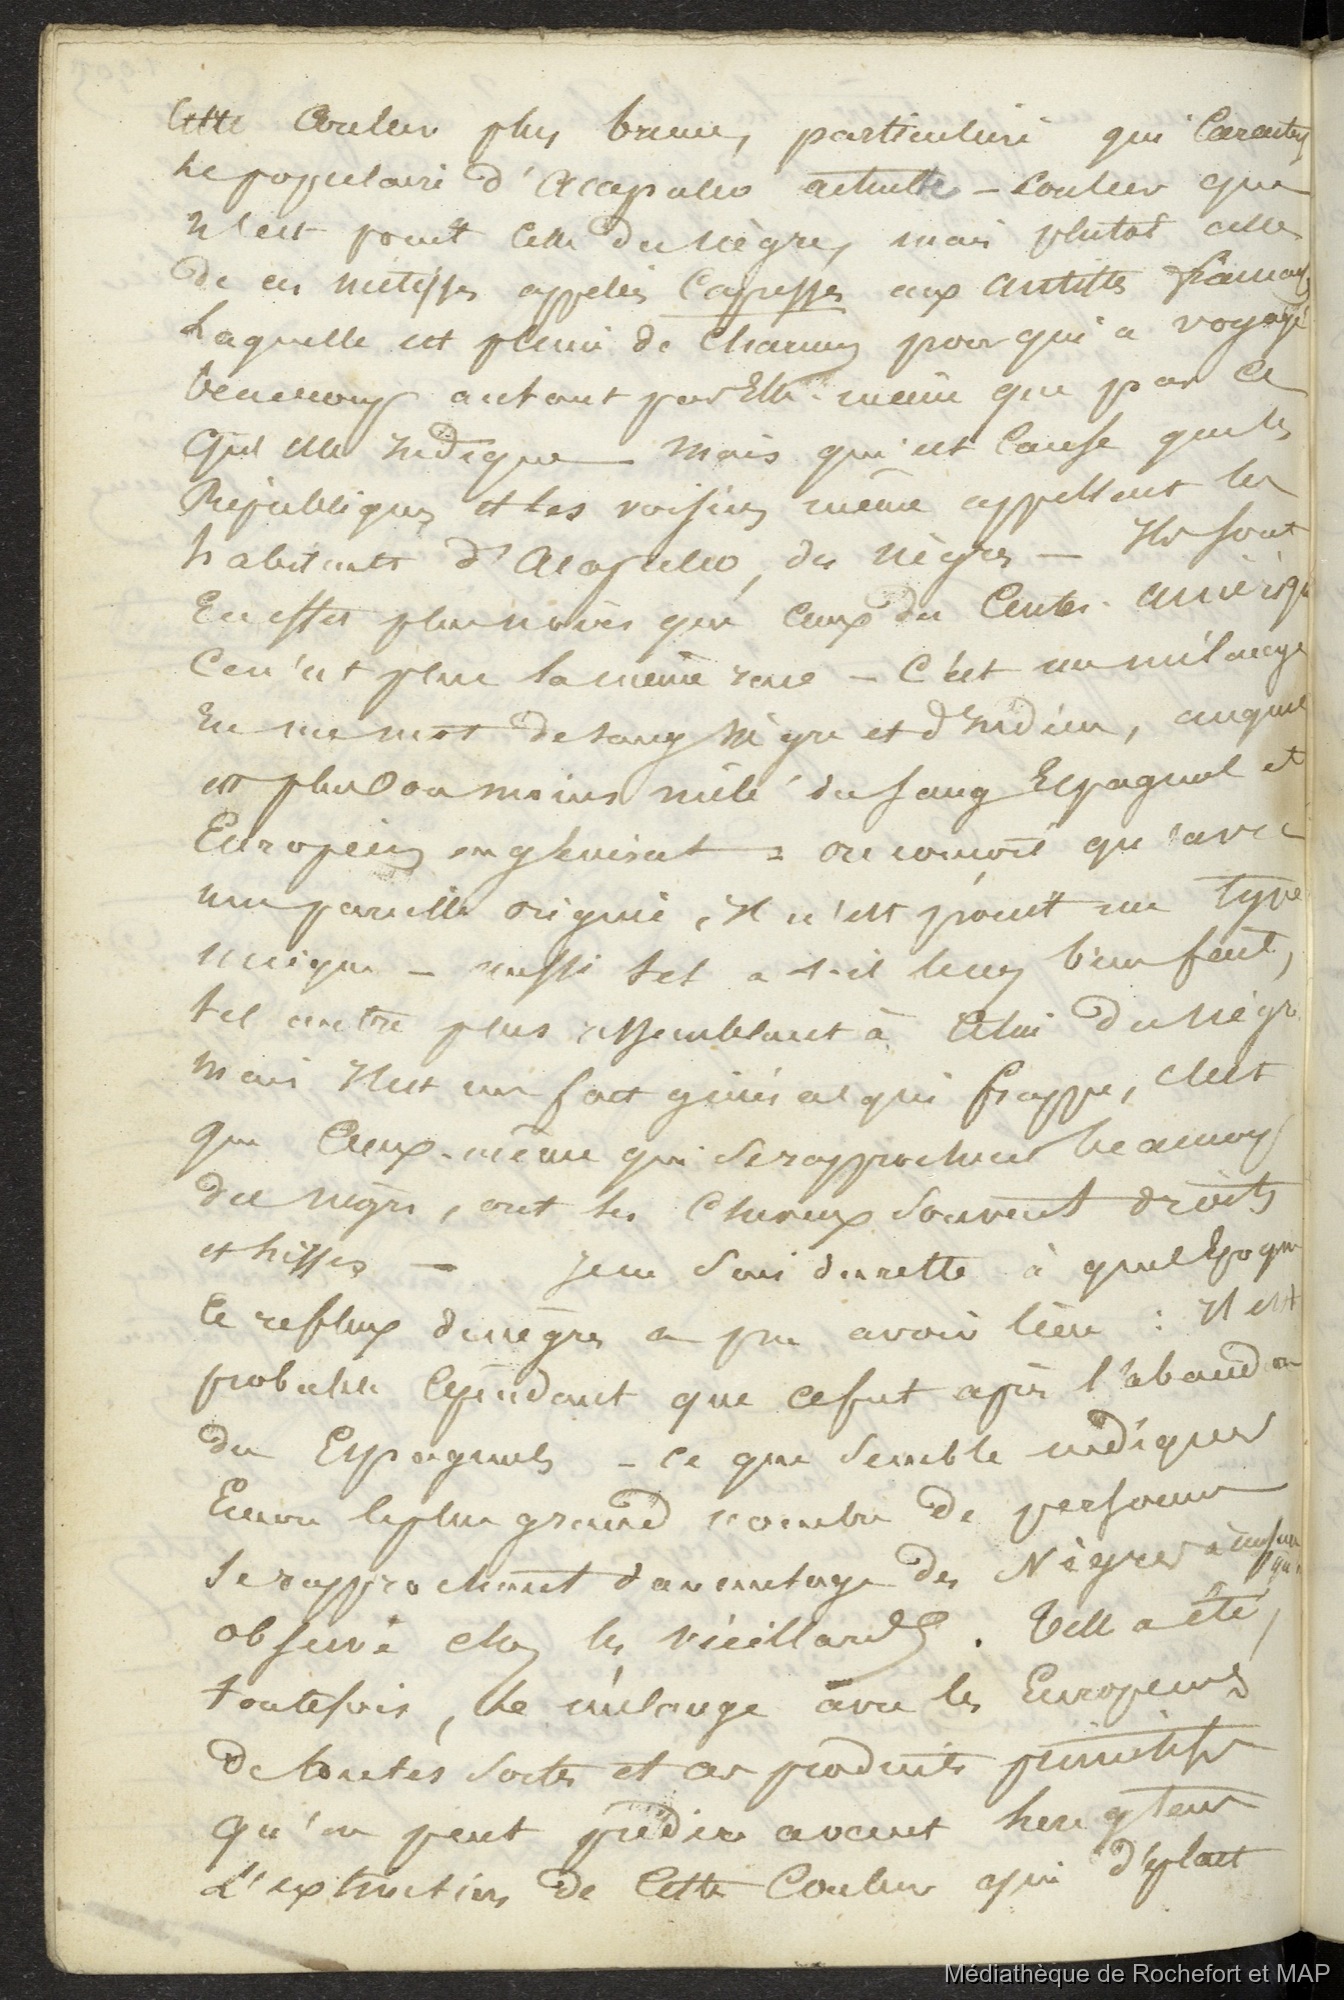 Cette Couleur plus brune, particulière qui Caractérise
la populaire d'Acapulco actuelle – couleur que
n'est point Celle du nègre, mais plutot celle
de ces métisses appelés Capresses aux antilles françaises
Laquelle est pleine de Charmes pour qui a voyagé
beaucoup autant par Elle-même que par ce
qu'elle Indique – mais qui est Cause que les
Républiques et les voisins même appellent les
habitants d'Acapulco, des nègres – Ils sont
En effet plus noirs que ceux du Centre-amérique
Ce n'est plus la même race – C'est un mélange
En un mot de sang Nègre et d'Indien, auquel
est plus ou moins mêlé du sang Espagnol et
Européen – on conçoit qu'avec
une pareille origine, Il n'est point un type
unique – aussi tel a t-il bien fait,
tel autre plus ressemblant à Celui du nègre
mais Il est un fait général qui frappe, C'est
que Ceux-même qui se rapprochent beaucoup
du nègre, ont les Cheveux Souvent droits
et lisses – Je ne Sais du reste à quel Epoque
le reflux de nègres a pu avoir lieu : Il est
probable Cependant que ce fut après l'abandon
des Espagnols – ce que Semble indiquer
Encore le plus grand nombre de personnes
Se rapprochant d'avantage des Nègres
observé chez les vieillards. Tell a été,
toutefois, le mélange avec les Européens
de toutes Sortes et ces produits primitifs
qu'on peut prédire avant longtems
L'extinction de Cette Couleur qui déplait